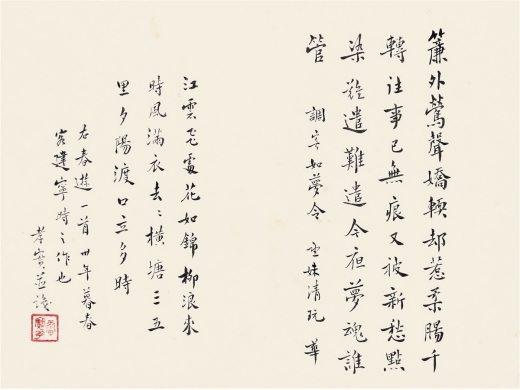 簾外鶯聲嬌輭却惹柔腸千
轉往事已無痕又被新愁點
染難遣難遣今夜夢魂誰
管
調寄如夢令
妹清玩 華
江雲飞處花如錦柳浪來
時風滿衣去去橫塘三五
里夕陽渡口立多時
右春遊一首卅年暮春
客建寧時之作也
孝寬並識